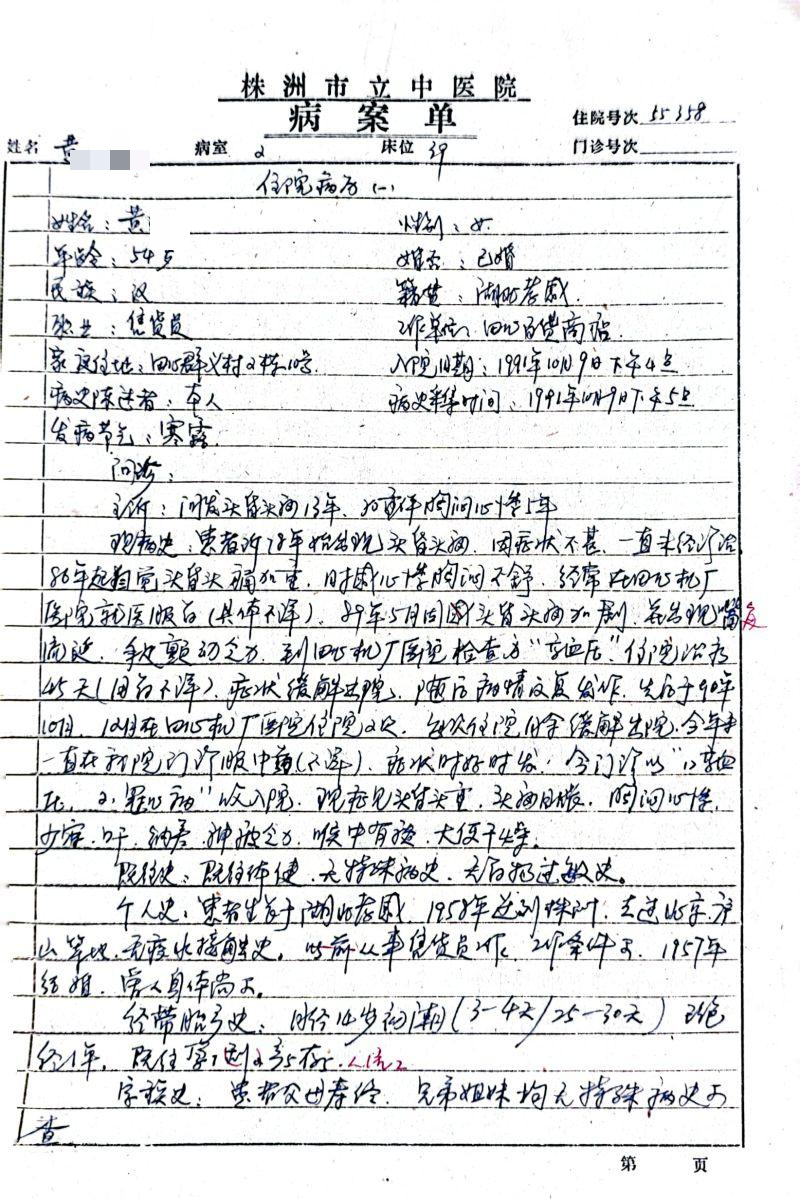 株洲市立中医院
病案单
住院号次 55358
姓名 黄 病室 2 床位 39 门诊号次
住院病历(一)
姓名：黄 性别：女
年龄：54岁 婚否：已婚
民族：汉 籍贯：湖北孝感
职业：售货员 工作单位：田心百货商店
家庭住址：田心群义村2栋10号 入院日期：1991年10月9日下午4点
病史陈述者：本人 病史采集时间：1991年10月9日下午5点
发病节气：寒露
问诊：
主诉：间发头昏头痛13年，加重伴胸闷心悸5年
现病史：患者于78年始出现头昏头痛，因症状不甚，一直未经诊治
86年起自觉头昏头痛加重，时感心悸胸闷不舒，经常在田心机厂
医院就医服白(具体不详)，89年5月因感头昏头痛加剧，并出现
流涎，手足颤动乏力，到田心机厂医院检查为“高血压”住院治疗
45天(用药不详)，症状缓解出院，随后病情反复发作，先后于90年
10月，12月在田心机厂医院住院2次，每次住院月余缓解出院，今年来
一直在我院门诊服中药(不详)，症状时好时发，今门诊以“1.高血
压，2.冠心病”收入院，现症见头昏头重，头痛目胀，胸闷心悸，
少寐，口干，纳差，神疲乏力，喉中有痰，大便干结。
既往史：既往体健，无特殊病史，无药物过敏史。
个人史：患者生长于湖北孝感，1958年迁到株洲，去过北京，
山等地，无疫水接触史。以前从事售货员工作，工作条件可，1957年
结婚，爱人身体尚可。
经带胎产史：月经14岁初潮(3-4天/25-30天)现绝
经1年，既往孕 产5存 人流2
家族史：患者父母寿终，兄弟姐妹均无特殊病史可
查
第 页